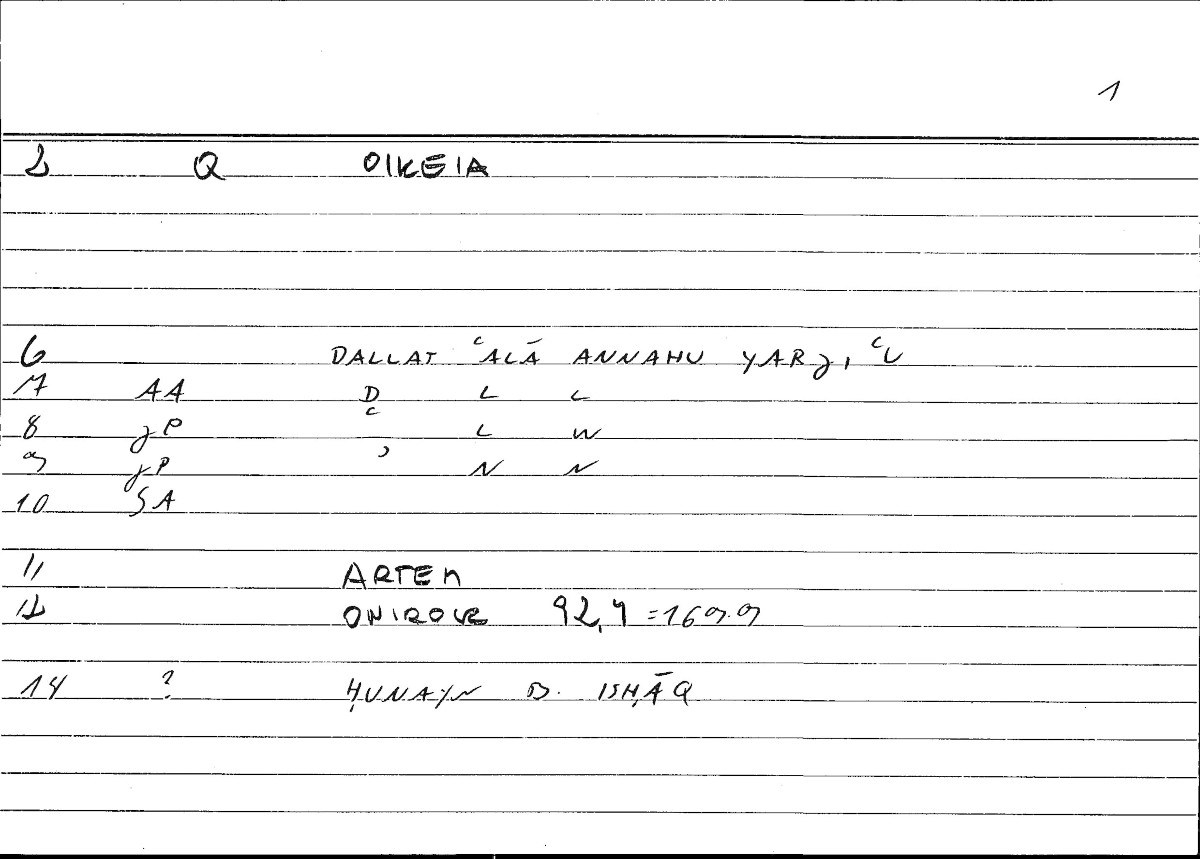 1
2 Q OIKEIA
6 DALLAT ʿALĀ ANNAHU YARJIʿU
7 AA D L L
8 JP ʿ L W
9 JP ʾ N N
10 SA
11 ARTEM
12 ONIROCR 92,4 =169.9
14 ? ḤUNAYN B. ISḤĀQ